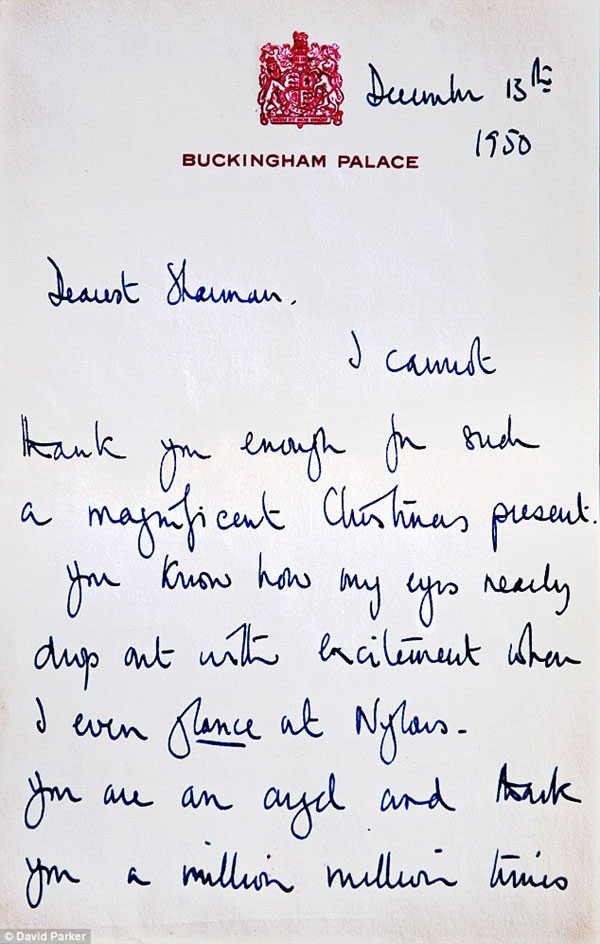 December 13th
1950
BUCKINGHAM PALACE
Dearest Sharman.
I cannot
thank you enough for such
a magnificent Christmas present.
You know how my eyes nearly
drop out with excitement when
I even glance at Nylons -
You are an angel and thank
you a million million times
© David Parker